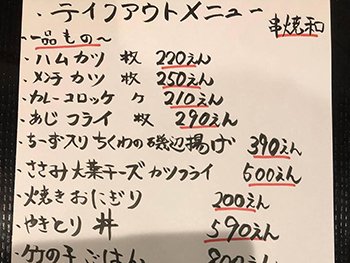 ・テイクアウトメニュー
串焼和
・一品もの〜
・ハムカツ 1枚 220えん
・メンチカツ 1枚 250えん
・カレーコロッケ 〃 210えん
・あじフライ 1枚 290えん
・ちーず入りちくわの磯辺揚げ 390えん
・ささみ大葉チーズカツフライ 500えん
・焼きおにぎり 200えん
・やきとり丼 590えん
・竹の子ごはん 800えん